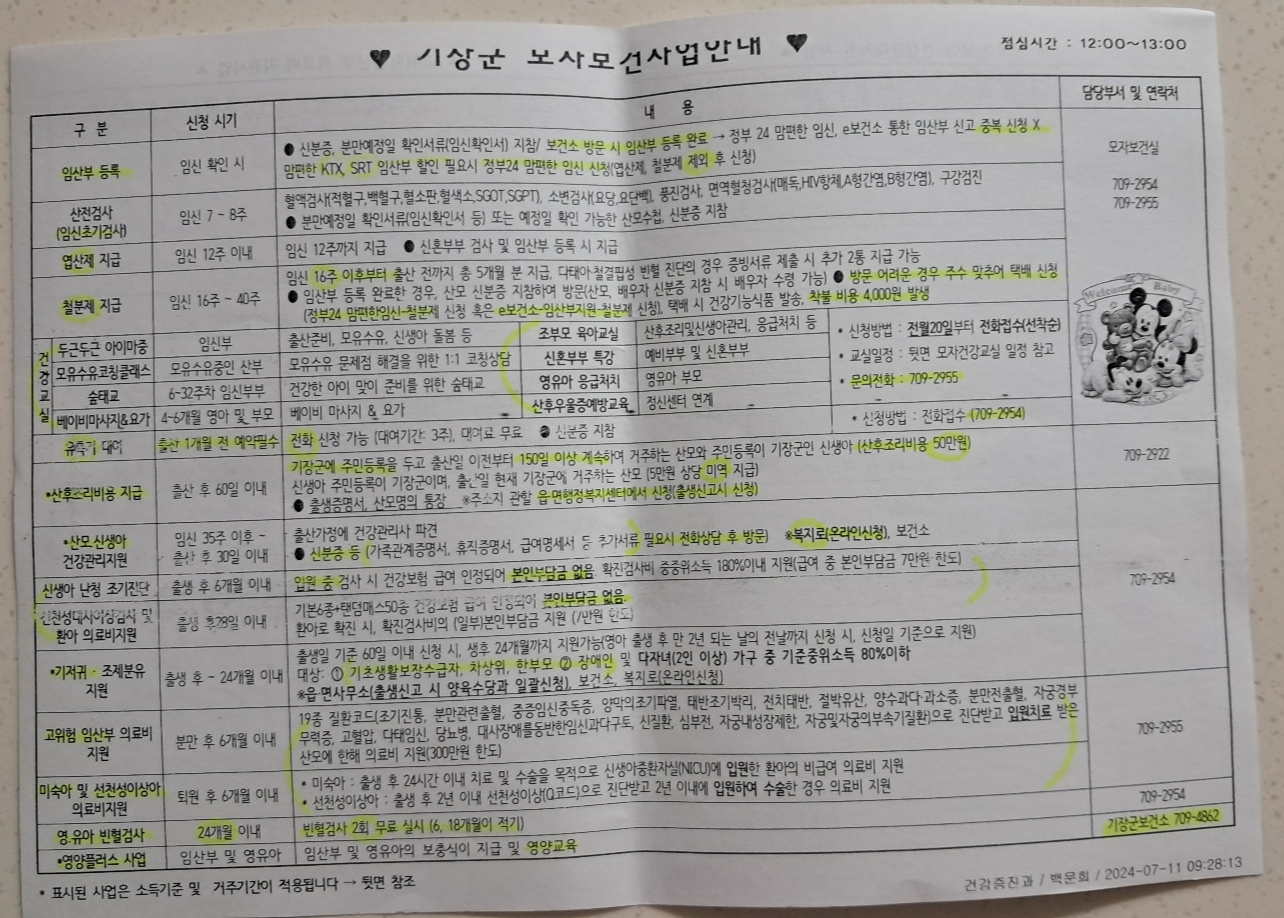 ♥ 기장군 모자보건사업안내 ♥
점심시간 : 12:00~13:00
구 분 신청 시기 내 용 담당부서 및 연락처
임산부 등록 임신 확인 시
● 신분증, 분만예정일 확인서류(임신확인서) 지참/ 보건소 방문 시 임산부 등록 완료 → 정부 24 맘편한 임신, e보건소 통한 임산부 신고 중복 신청 X
맘편한 KTX, SRT 임산부 할인 필요시 정부24 맘편한 임신 신청(엽산제, 철분제 제외 후 신청)
모자보건실
709-2954
709-2955
산전검사
(임신초기검사)
임신 7 ~ 8주
혈액검사(적혈구,백혈구,혈소판,혈색소,SGOT,SGPT), 소변검사(요당,요단백), 풍진검사, 면역혈청검사(매독,HIV항체,A형간염,B형간염), 구강검진
● 분만예정일 확인서류(임신확인서 등) 또는 예정일 확인 가능한 산모수첩, 신분증 지참
엽산제 지급 임신 12주 이내 임신 12주까지 지급 ● 신혼부부 검사 및 임산부 등록 시 지급
철분제 지급 임신 16주 ~ 40주
임신 16주 이후부터 출산 전까지 총 5개월 분 지급, 다태아·철결핍성 빈혈 진단의 경우 증빙서류 제출 시 추가 2통 지급 가능
● 임산부 등록 완료한 경우, 산모 신분증 지참하여 방문(산모, 배우자 신분증 지참 시 배우자 수령 가능) ● 방문 어려운 경우 주수 맞추어 택배 신청
(정부24 맘편한임신-철분제 신청 혹은 e보건소-임산부지원-철분제 신청), 택배 시 건강기능식품 발송, 착불 비용 4,000원 발생
Welcome Baby
건강교실
두근두근 아이마중 임산부 출산준비, 모유수유, 신생아 돌봄 등 조부모 육아교실 산후조리및신생아관리, 응급처치 등
모유수유코칭클래스 모유수유중인 산부 모유수유 문제점 해결을 위한 1:1 코칭상담 신혼부부 특강 예비부부 및 신혼부부
숲태교 6-32주차 임신부부 건강한 아이 맞이 준비를 위한 숲태교 영유아 응급처치 영유아 부모
베이비마사지&요가 4-6개월 영아 및 부모 베이비 마사지 & 요가 산후우울증예방교육 정신센터 연계
• 신청방법 : 전월20일부터 전화접수(선착순)
• 교실일정 : 뒷면 모자건강교실 일정 참고
• 문의전화 : 709-2955
• 신청방법 : 전화접수 (709-2954)
유축기 대여 출산 1개월 전 예약필수 전화 신청 가능 (대여기간: 3주), 대여료 무료 ● 신분증 지참
*산후조리비용 지급 출산 후 60일 이내
기장군에 주민등록을 두고 출산일 이전부터 150일 이상 계속하여 거주하는 산모와 주민등록이 기장군인 신생아 (산후조리비용 50만원)
신생아 주민등록이 기장군이며, 출산일 현재 기장군에 거주하는 산모 (5만원 상당 미역 지급)
● 출생증명서, 산모명의 통장 ※주소지 관할 읍·면행정복지센터에서 신청(출생신고시 신청)
709-2922
*산모·신생아
건강관리지원
임신 35주 이후 ~
출산 후 30일 이내
출산가정에 건강관리사 파견
● 신분증 등 (가족관계증명서, 휴직증명서, 급여명세서 등 추가서류 필요시 전화상담 후 방문) ※복지로(온라인신청), 보건소
신생아 난청 조기진단 출생 후 6개월 이내 입원 중 검사 시 건강보험 급여 인정되어 본인부담금 없음. 확진검사비 중중위소득 180%이내 지원(급여 중 본인부담금 7만원 한도)
709-2954
선천성대사이상검사 및
환아 의료비지원
출생 후28일 이내
기본6종+탠덤매스50종 건강보험 급여 인정되어 본인부담금 없음.
환아로 확진 시, 확진검사비의 (일부)본인부담금 지원 (7만원 한도)
*기저귀 · 조제분유
지원
출생 후 ~ 24개월 이내
출생일 기준 60일 이내 신청 시, 생후 24개월까지 지원가능(영아 출생 후 만 2년 되는 날의 전날까지 신청 시, 신청일 기준으로 지원)
대상: ① 기초생활보장수급자, 차상위, 한부모 ② 장애인 및 다자녀(2인 이상) 가구 중 기준중위소득 80%이하
※읍·면사무소(출생신고 시 양육수당과 일괄신청), 보건소, 복지로(온라인신청)
고위험 임산부 의료비
지원
분만 후 6개월 이내
19종 질환코드(조기진통, 분만관련출혈, 중증임신중독증, 양막의조기파열, 태반조기박리, 전치태반, 절박유산, 양수과다·과소증, 분만전출혈, 자궁경부
무력증, 고혈압, 다태임신, 당뇨병, 대사장애를동반한임신과다구토, 신질환, 심부전, 자궁내성장제한, 자궁및자궁의부속기질환)으로 진단받고 입원치료 받은
산모에 한해 의료비 지원(300만원 한도)
709-2955
미숙아 및 선천성이상아
의료비지원
퇴원 후 6개월 이내
• 미숙아 : 출생 후 24시간 이내 치료 및 수술을 목적으로 신생아중환자실(NICU)에 입원한 환아의 비급여 의료비 지원
• 선천성이상아 : 출생 후 2년 이내 선천성이상(Q코드)으로 진단받고 2년 이내에 입원하여 수술한 경우 의료비 지원
709-2954
영.유아 빈혈검사 24개월 이내 빈혈검사 2회 무료 실시 (6, 18개월이 적기)
기장군보건소 709-4862
*영양플러스 사업 임산부 및 영유아 임산부 및 영유아의 보충식이 지급 및 영양교육
* 표시된 사업은 소득기준 및 거주기간이 적용됩니다 → 뒷면 참조
건강증진과 / 백문희 / 2024-07-11 09:28:13